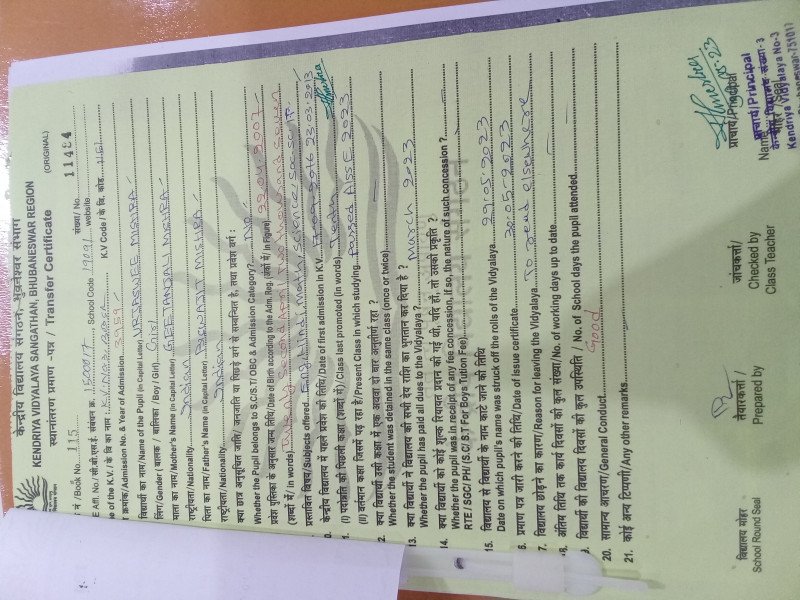 केन्द्रीय विद्यालय संगठन, भुवनेश्वर संभाग
KENDRIYA VIDYALAYA SANGATHAN, BHUBANESWAR REGION
स्थानांतरण प्रमाण -पत्र / Transfer Certificate (ORIGINAL)
/Book No. 115 संख्या/ No. 11484
E Aff. No./ सी.बी.एस.ई. संबंधन क्र. 1500017 School Code 19091 website
e of the K.V./ के वि का नाम : K.V. No-3 BBSR K.V Code / के वि. कोड
क्रमांक/Admission No. & Year of Admission 3159
विद्यार्थी का नाम/Name of the Pupil (in Capital Letter) URJASWEE MISHRA
लिंग/Gender/ बालक / बालिका / Boy/ Girl Girl
माता का नाम/Mother's Name (in Capital Letter) GEETANJALI MISHRA
राष्ट्रीयता/Nationality Indian
पिता का नाम/Father's Name (in Capital Letter) BISWAJIT MISHRA
राष्ट्रीयता/Nationality Indian
क्या छात्र अनुसूचित जाति/ जनजाति या पिछड़े वर्ग से सम्बन्धित है, तथा प्रवेश वर्ग :
Whether the Pupil belongs to S.C/S.T/ OBC & Admission Category? No
प्रवेश पुस्तिका के अनुसार जन्म तिथि/Date of Birth according to the Adm. Reg. (अंकों में)/ In Figure 22.04.2007
(शब्दों में/ In words) Twenty Second April Two thousand Seven
प्रस्तावित विषय/Subjects offered Eng/Hindi/Math/Science/Soc.Sc/IT
केन्द्रीय विद्यालय में पहले प्रवेश की तिथि/Date of first admission in K.V.
1. (I) पदोन्नति की पिछली कक्षा (शब्दों में)/Class last promoted (in words) Tenth
(II) वर्तमान कक्षा जिसमें पढ़ रहा है/Present Class in which studying Passed AISSE 2023
2. क्या विद्यार्थी उसी कक्षा में एक अथवा दो बार अनुत्तीर्ण रहा ?
Whether the student was detained in the same class (once or twice)
13. क्या विद्यार्थी ने विद्यालय की सभी देय राशि का भुगतान कर दिया है ?
Whether the pupil has paid all dues to the Vidyalaya ? March 2023
14. क्या विद्यार्थी को कोई शुल्क रियायत प्रदान की गई थी, यदि हाँ, तो उसकी प्रकृति ?
Whether the pupil was in receipt of any fee concession, if so, the nature of such concession ?
RTE / SGC/ PH/ (S.C/ S.T For Boys Tuition Fee)
15. विद्यालय से विद्यार्थी के नाम काटे जाने की तिथि
Date on which pupil's name was struck off the rolls of the Vidyalaya 29.05.2023
6. प्रमाण पत्र जारी करने की तिथि/Date of Issue certificate 30.05.2023
7. विद्यालय छोड़ने का कारण/Reason for leaving the Vidyalaya To read elsewhere
8. अंतिम तिथि तक कार्य दिवसों की कुल संख्या/No. of working days up to date
9. विद्यार्थी की विद्यालय दिवसों की कुल उपस्थिति / No. of School days the pupil attended
20. सामान्य आचरण/General Conduct Good
21. कोई अन्य टिप्पणी/Any other remarks
विद्यालय मोहर
School Round Seal
तैयारकर्त्ता /
Prepared by
जांचकर्त्ता/
Checked by
Class Teacher
प्राचार्य/Principal
Name
प्राचार्य/Principal
केन्द्रीय विद्यालय संख्या-3
Kendriya Vidyalaya No-3